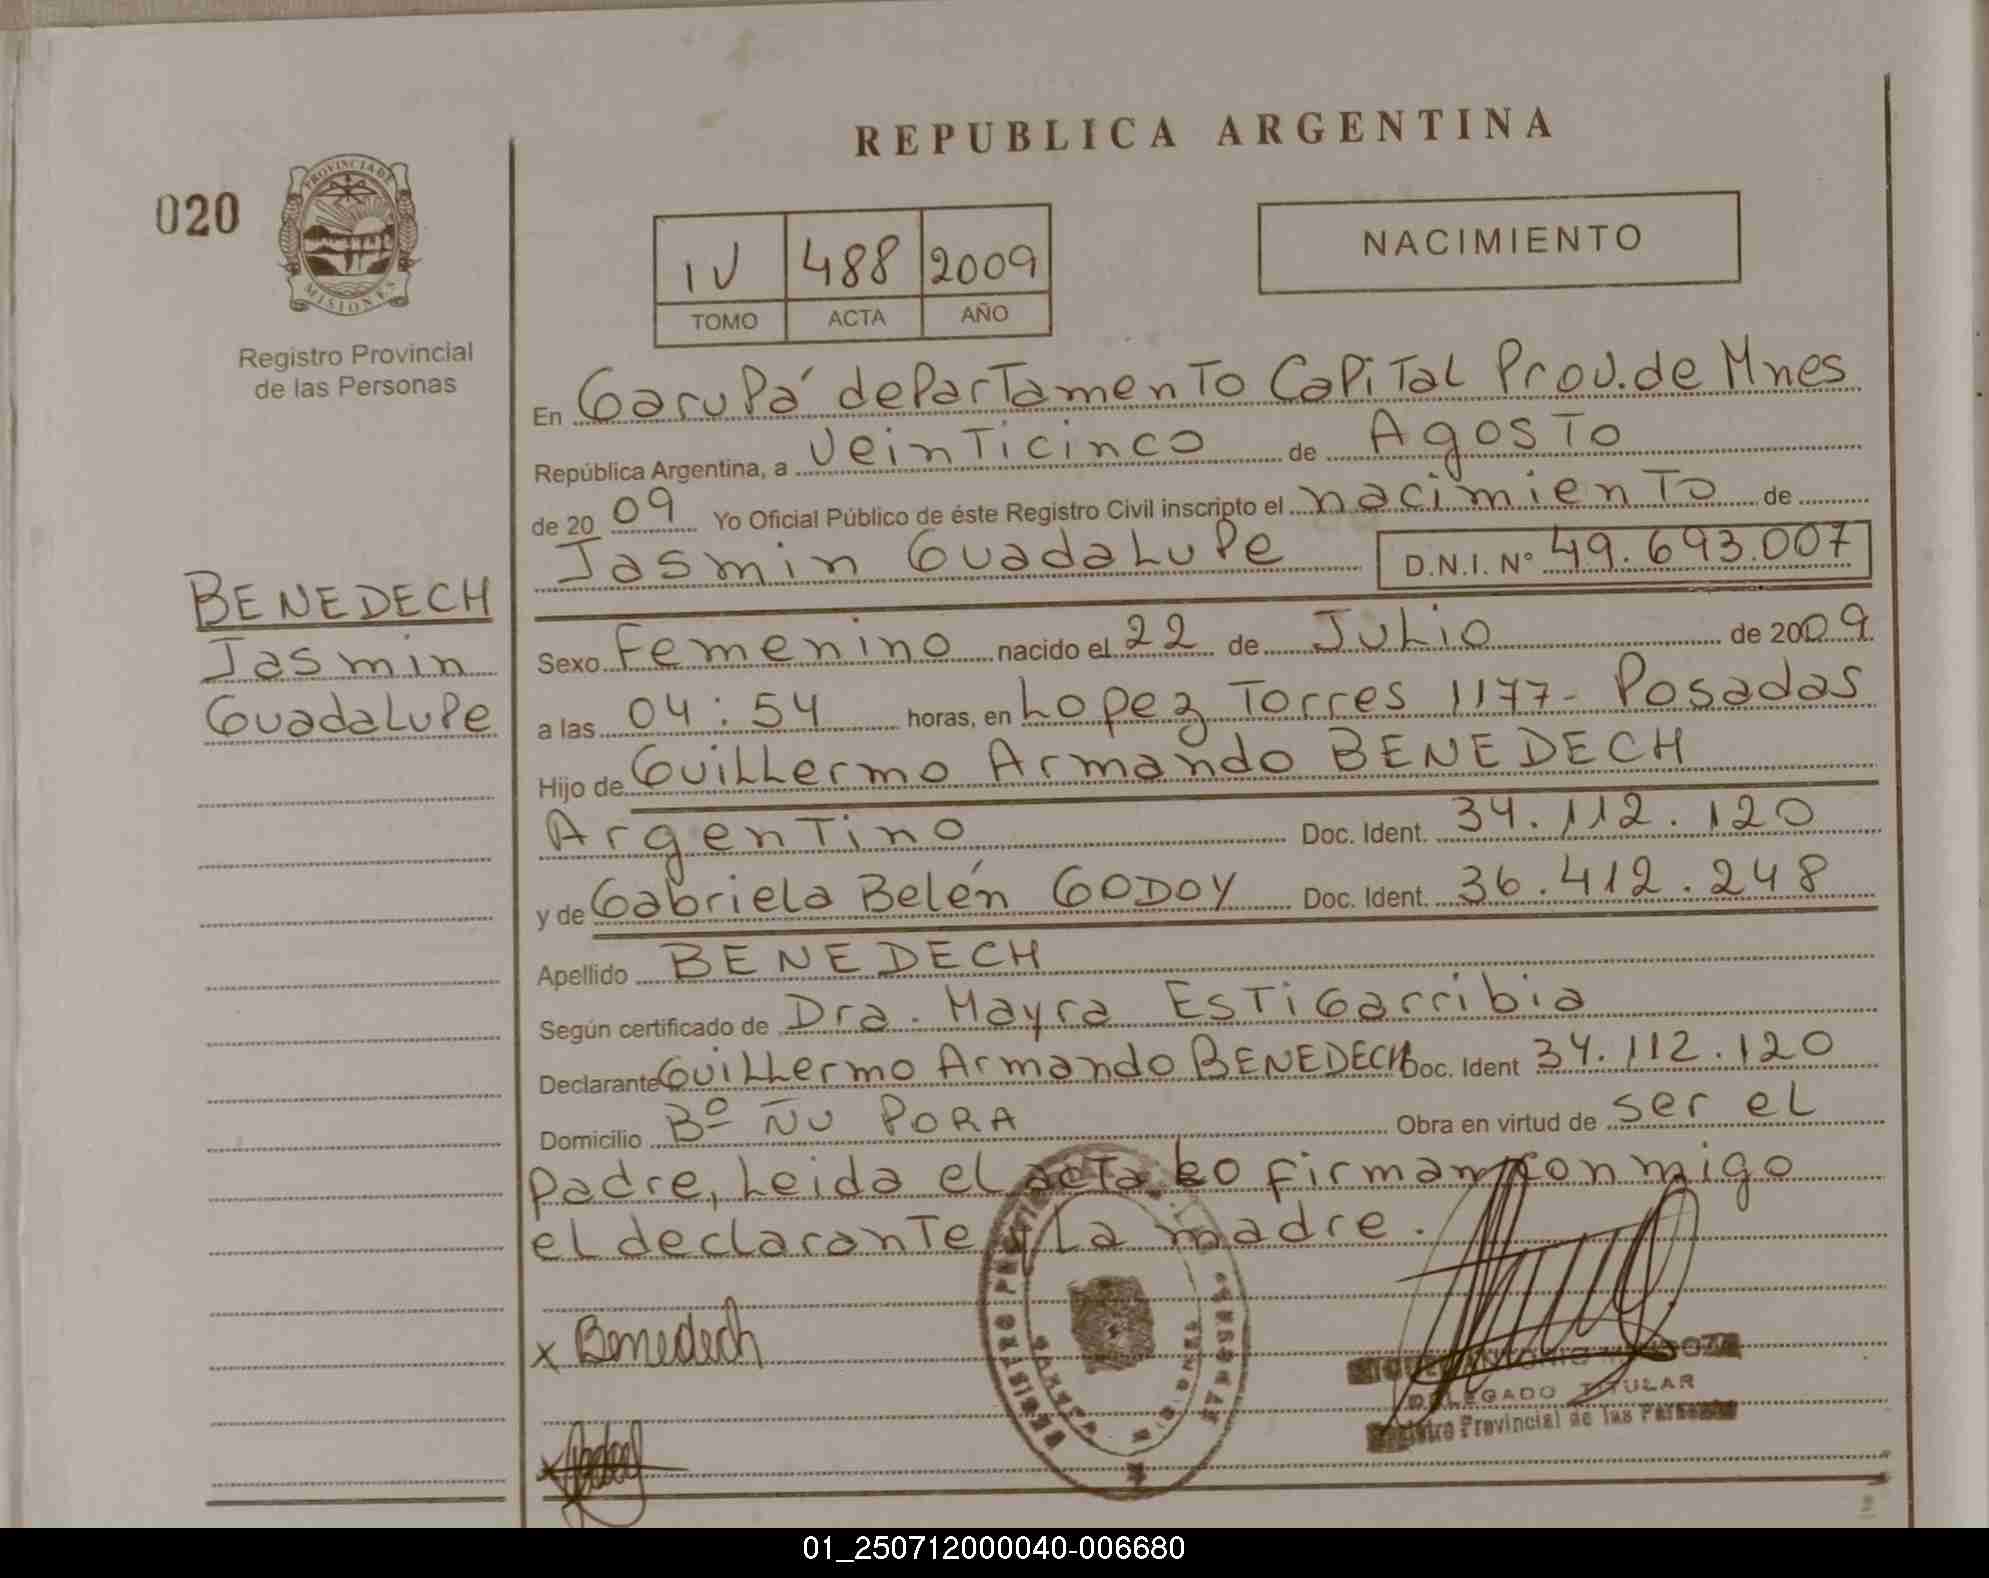 REPUBLICA ARGENTINA
020
PROVINCIA DE
MISIONES
Registro Provincial
de las Personas
IV 488 2009
TOMO ACTA AÑO
NACIMIENTO
En Garupá departamento Capital Prov. de Mnes
República Argentina, a veinticinco de Agosto
de 20 09 Yo Oficial Público de éste Registro Civil inscripto el nacimiento de
Jasmin Guadalupe D.N.I. Nº 49.693.007
BENEDECH
Jasmin
Guadalupe
Sexo Femenino nacido el 22 de Julio de 2009.
a las 04:54 horas, en Lopez Torres 1177- Posadas
Hijo de Guillermo Armando BENEDECH
Argentino Doc. Ident. 34.112.120
y de Gabriela Belén GODOY Doc. Ident. 36.412.248
Apellido BENEDECH
Según certificado de Dra. Mayra Estigarribia
Declarante Guillermo Armando BENEDECH Doc. Ident 34.112.120
Domicilio Bº ÑU PORA Obra en virtud de ser el
padre, Leida el acta lo firman conmigo
el declarante y La madre.
x Benedech
x
DELEGADO TITULAR
Registro Provincial de las Personas
01_250712000040-006680